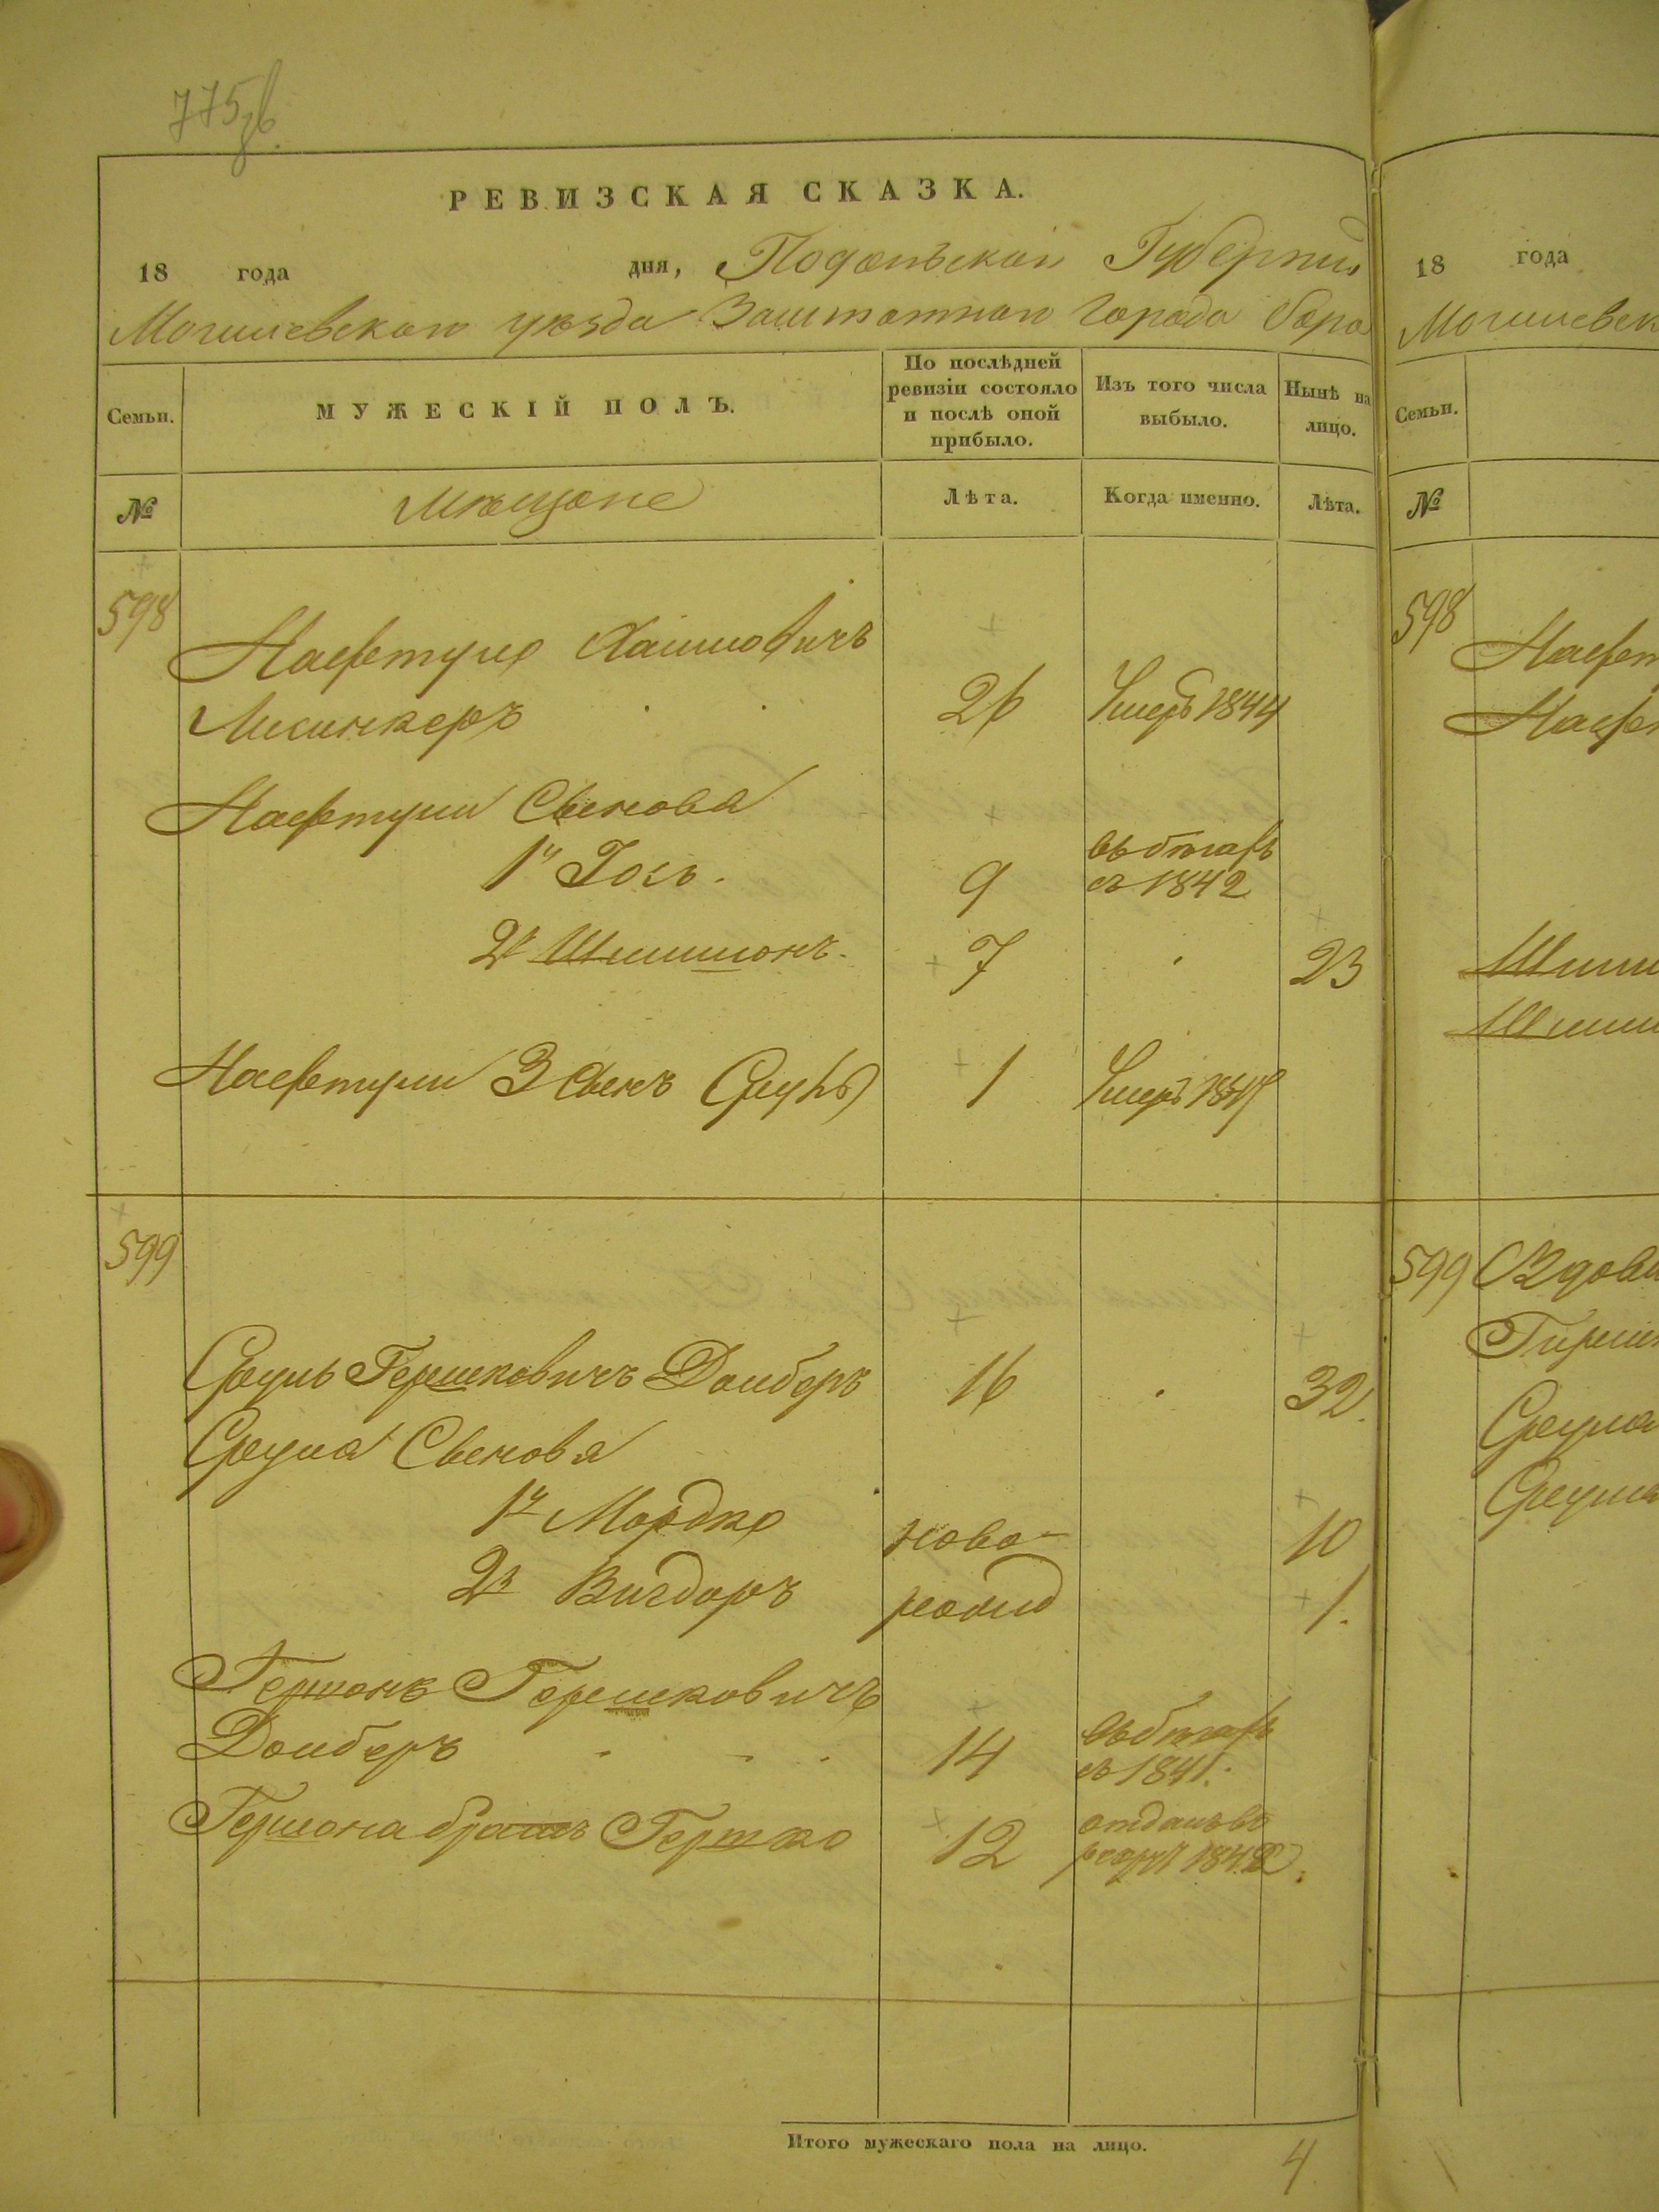 775 об.
РЕВИЗСКАЯ СКАЗКА.
18 года дня, Подольской Губернии
Могилевского уѣзда Заштатного города Бара
Семьи.
МУЖЕСКІЙ ПОЛЪ.
По послѣдней ревизіи состояло и послѣ оной прибыло.
Изъ того числа выбыло.
Нынѣ на лицо.
№
Мѣщане
Лѣта.
Когда именно.
Лѣта.
598
Нафтула Хаимовичъ
26 Умеръ 1844
Нафтули Сынова
1й Іось. 9 въ бѣгахъ
съ 1842
2й Шмишонъ. 7 23
Нафтули 3 Сынъ Сруль 1
599
Сруль Гершковичъ Доиберъ 16 32.
Сруля Сынова
1й Мордко ново- 10
2й Вигдоръ рожд 1.
Гершонъ Гершковичъ
Доиберъ 14 въ бѣгахъ
съ 1841.
Гершона братъ Гершко 12 отданъ въ
Итого мужескаго пола на лицо. 4
18 года
Могилевск
Семьи.
№
598
Нафт
Нафт
Шми
Шми
599
Вдова
Гирш
Сруля